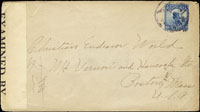 EXAMINED BY
Christian Endeavor World
Mt Vernon and Hancock St
Boston, Mass
U.S.A